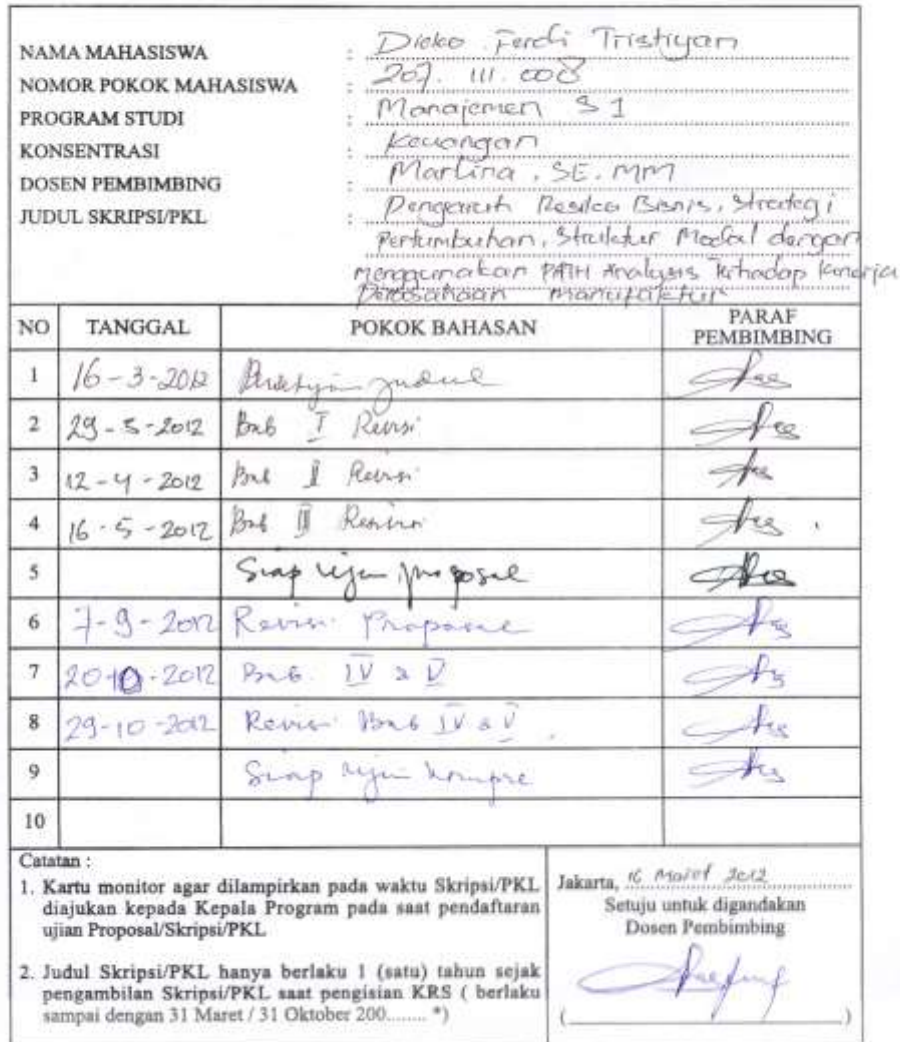 NAMA MAHASISWA : Dicko Ferdi Tristiyan
NOMOR POKOK MAHASISWA : 207. 111. 008
PROGRAM STUDI : Manajemen S1
KONSENTRASI : Keuangan
DOSEN PEMBIMBING : Marlina, SE. MM
JUDUL SKRIPSI/PKL : Pengaruh Resiko Bisnis, Strategi
Pertumbuhan, Struktur Modal dengan
menggunakan PATH Analysis Terhadap kinerja
Perusahaan manufaktur
NO TANGGAL POKOK BAHASAN PARAF PEMBIMBING
1 16-3-2012 judul
2 29-3-2012 Bab I Revisi
3 12-4-2012 Bab II Revisi
4 16-5-2012 Bab III Revisi
5 Siap ujian proposal
6 7-9-2012 Revisi Proposal
7 20-10-2012 Bab. IV & V
8 29-10-2012 Revisi Bab IV & V
9 Siap ujian kompre
10
Catatan :
1. Kartu monitor agar dilampirkan pada waktu Skripsi/PKL
diajukan kepada Kepala Program pada saat pendaftaran
ujian Proposal/Skripsi/PKL
2. Judul Skripsi/PKL hanya berlaku 1 (satu) tahun sejak
pengambilan Skripsi/PKL saat pengisian KRS ( berlaku
sampai dengan 31 Maret / 31 Oktober 200........ *)
Jakarta, 16 Maret 2012
Setuju untuk digandakan
Dosen Pembimbing
(                    )